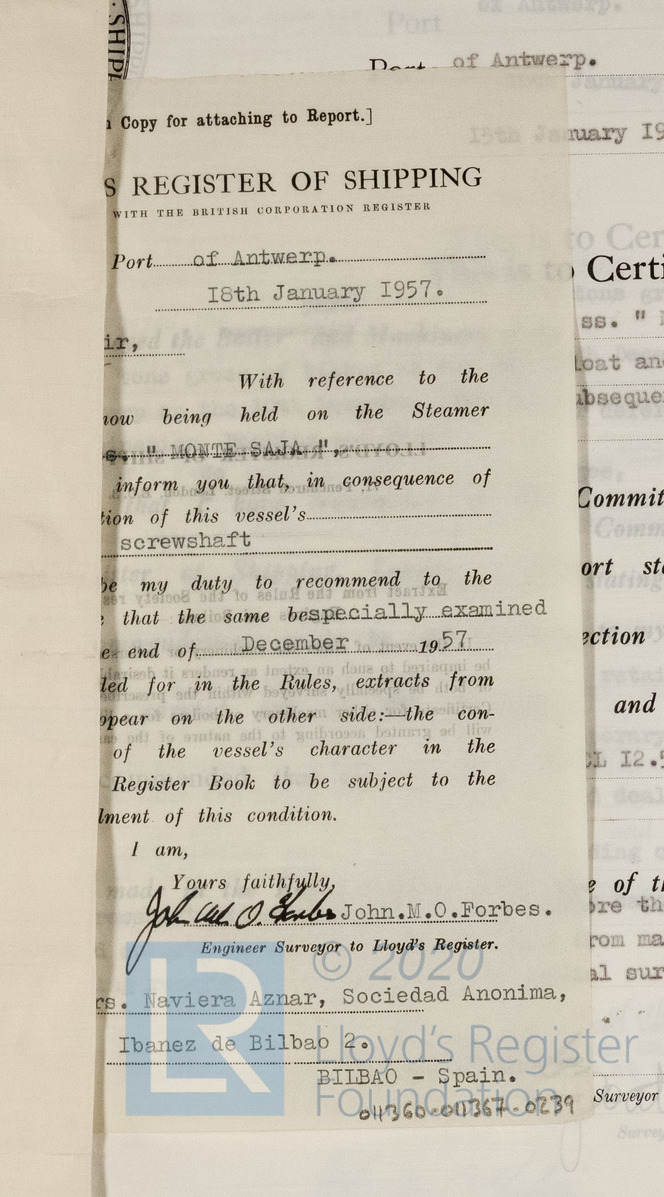 SHIP
Port of Antwerp.
Copy for attaching to Report.]
15th January 19
S REGISTER OF SHIPPING
WITH THE BRITISH CORPORATION REGISTER
Port of Antwerp.
18th January 1957.
ir,
With reference to the
now being held on the Steamer
s. " MONTE SAJA ",
inform you that, in consequence of
tion of this vessel's
screwshaft
be my duty to recommend to the
that the same be specially examined
e end of December 1957
led for in the Rules, extracts from
ppear on the other side:—the con-
of the vessel's character in the
Register Book to be subject to the
lment of this condition.
I am,
Yours faithfully,
John M. O. Forbes John.M.O.Forbes.
Engineer Surveyor to Lloyd's Register.
rs. Naviera Aznar, Sociedad Anonima,
Ibanez de Bilbao 2.
BILBAO - Spain.
011360-011367-0239
to Certi
ss. "
loat and
ubseque
Committ
ort sta
ection
and
CL 12.5
e of th
ore th
rom ma
al sur
Surveyor
LR
© 2020
Lloyd's Register
Foundation